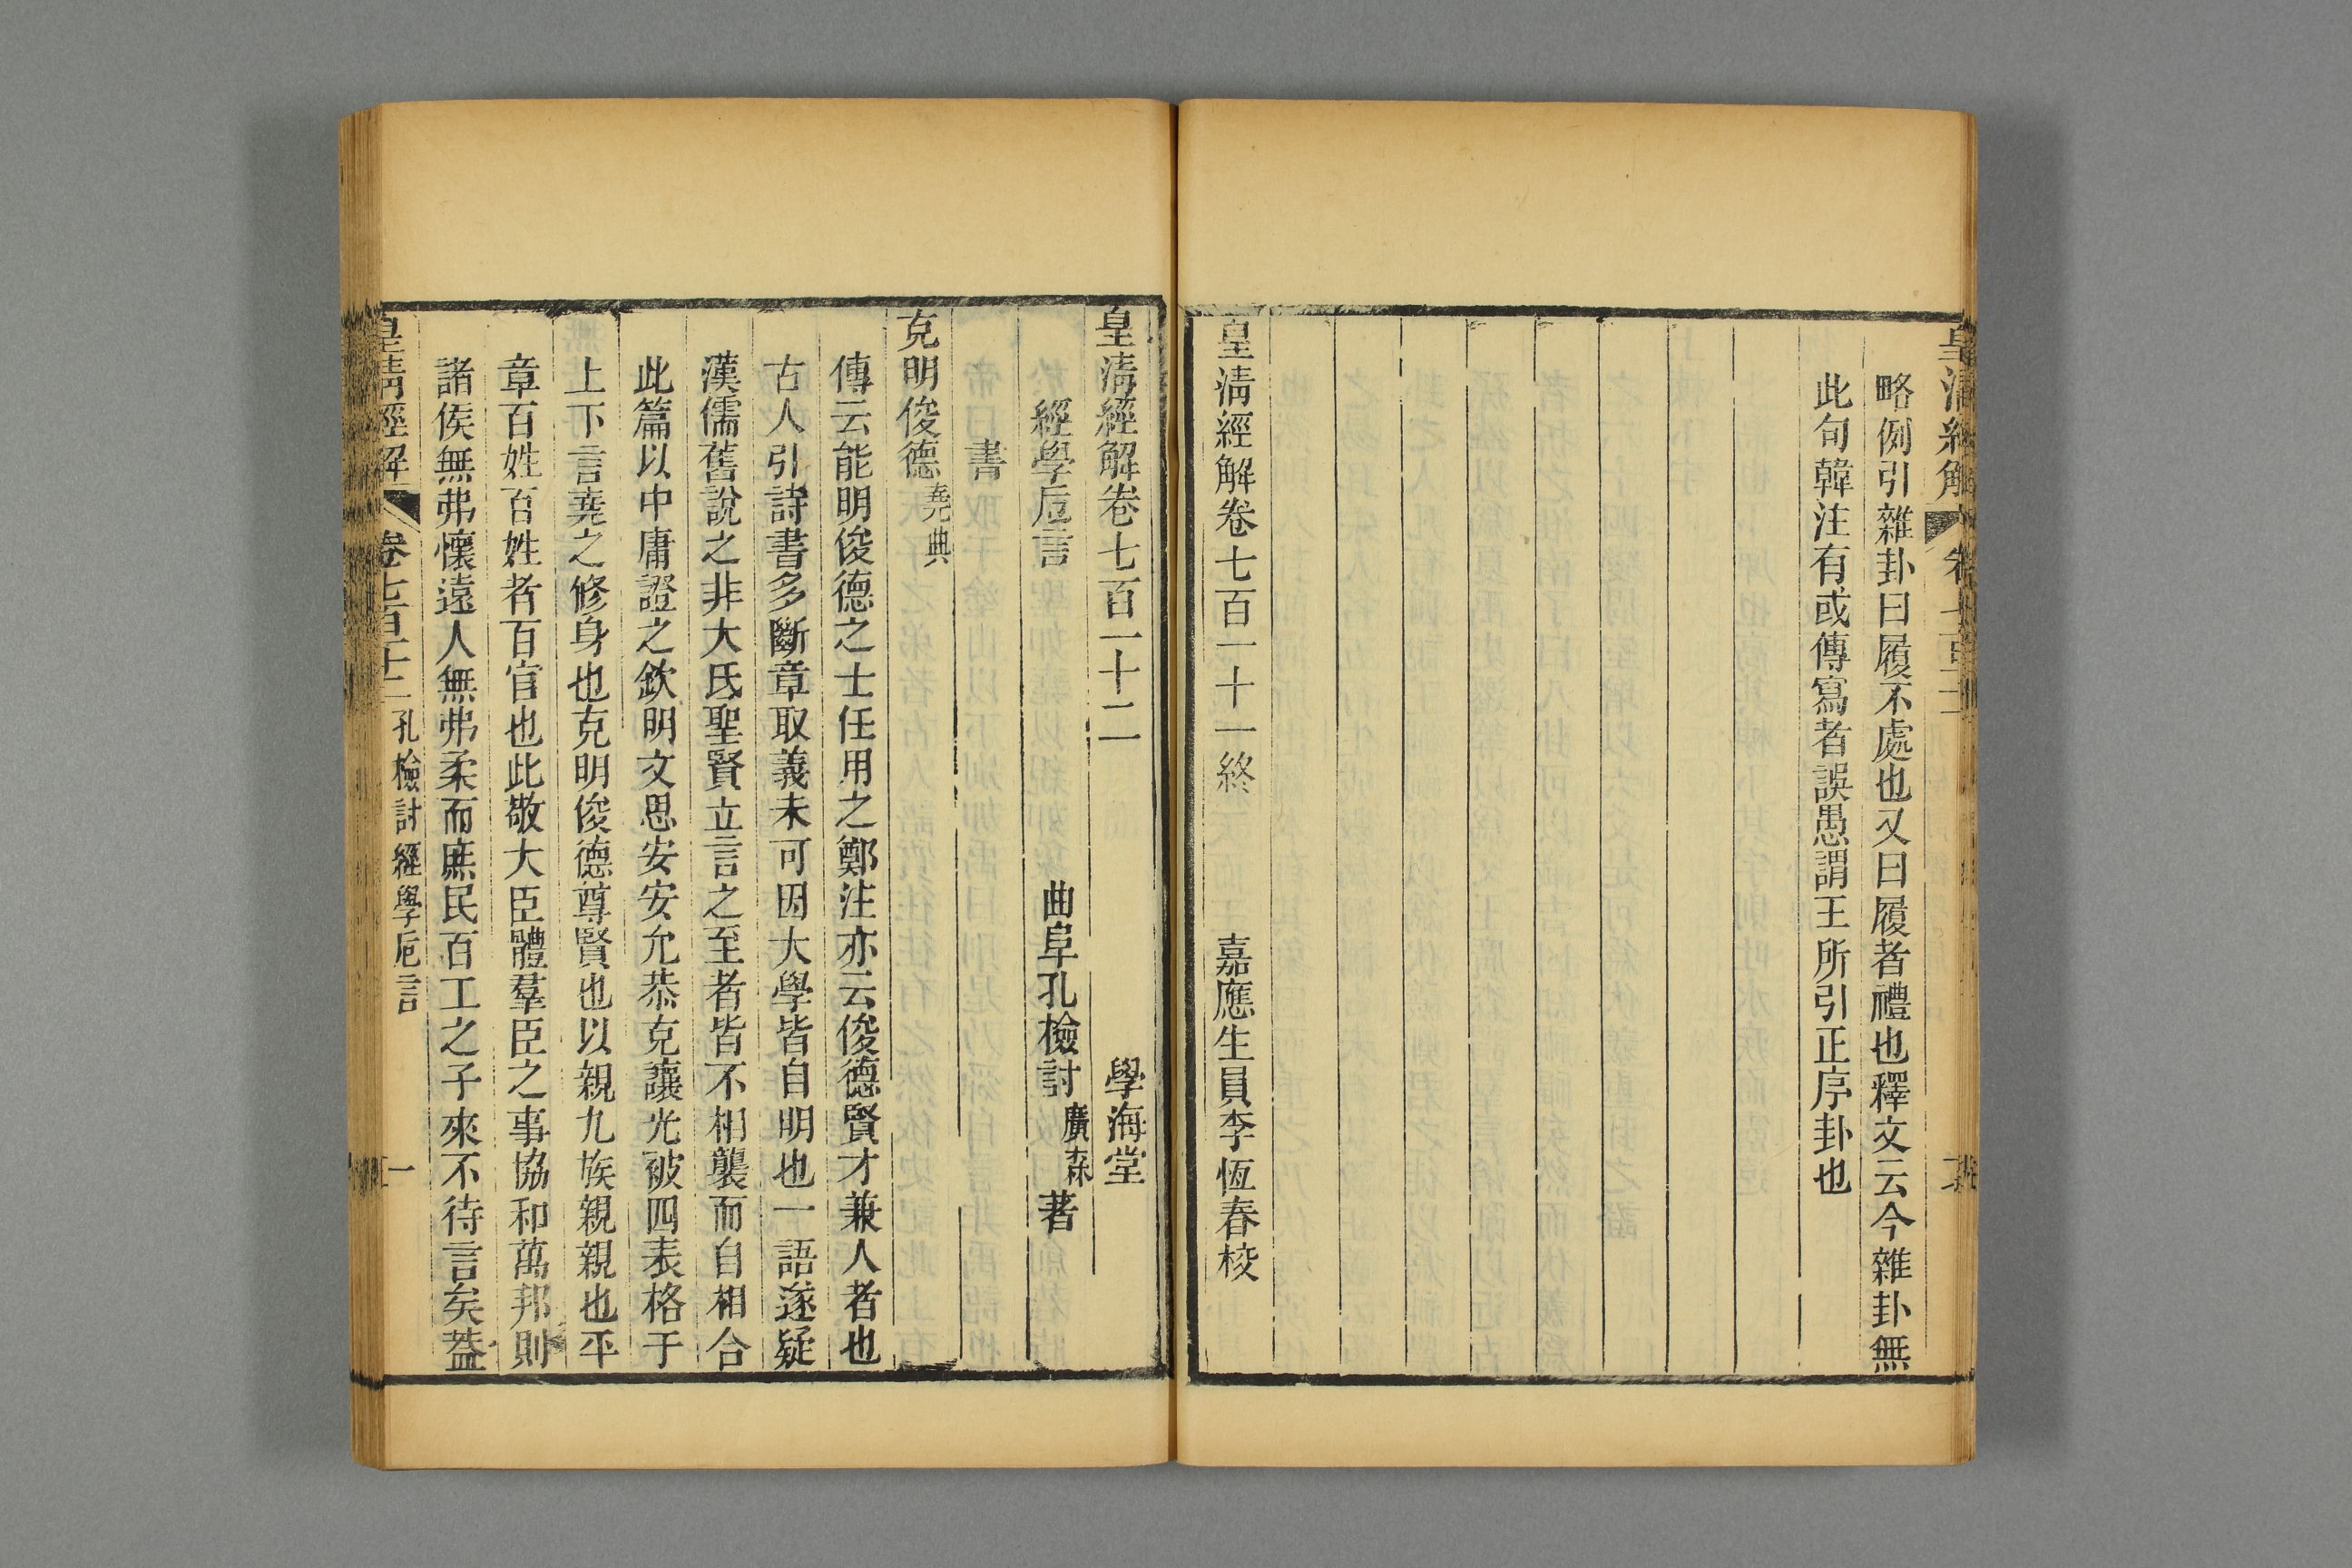 略例引雜卦曰履不處也又曰履者禮也釋文云今雜卦無
此句韓注有或傳寫者誤愚謂王所引正序卦也
皇清經解卷七百一十一終
嘉應生員李恆春校
皇清經解卷七百一十二
學海堂
經學卮言
曲阜孔檢討廣森著
書
克明俊德堯典
傳云能明俊德之士任用之鄭注亦云俊德賢才兼人者也
古人引詩書多斷章取義未可因大學皆自明也一語遂疑
漢儒舊說之非大氐聖賢立言之至者皆不相襲而自相合
此篇以中庸證之欽明文思安安允恭克讓光被四表格于
上下言堯之修身也克明俊德尊賢也以親九族親親也平
章百姓百姓者百官也此敬大臣體羣臣之事協和萬邦則
諸侯無弗懷遠人無弗柔而庶民百工之子來不待言矣蓋
皇清經解
卷七百十二
孔檢討經學卮言
一